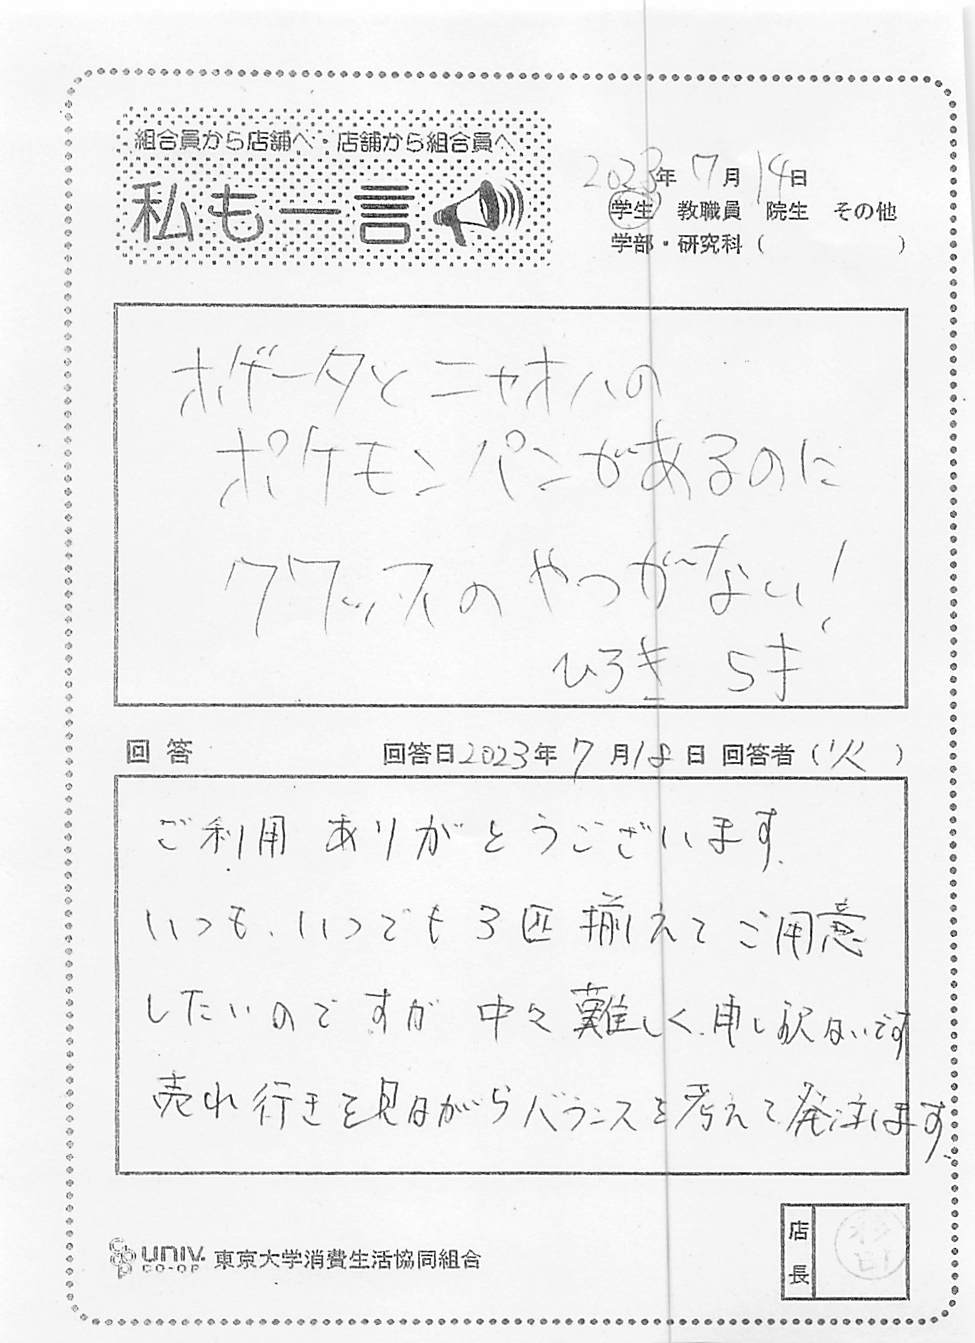 組合員から店舗へ・店舗から組合員へ
私も一言
2023年 7月 14日
学生 教職員 院生 その他
学部・研究科( )
ホゲータとニャオハの
ポケモンパンがあるのに
クワッスのやつがない!
ひろき 5才
回答 回答日2023年 7月18日 回答者( )
ご利用ありがとうございます。
いつも、いつでも3匹揃えてご用意
したいのですが中々難しく、申し訳ないです
売れ行きを見ながらバランスを考えて発注します。
univ. CO-OP 東京大学消費生活協同組合
店長